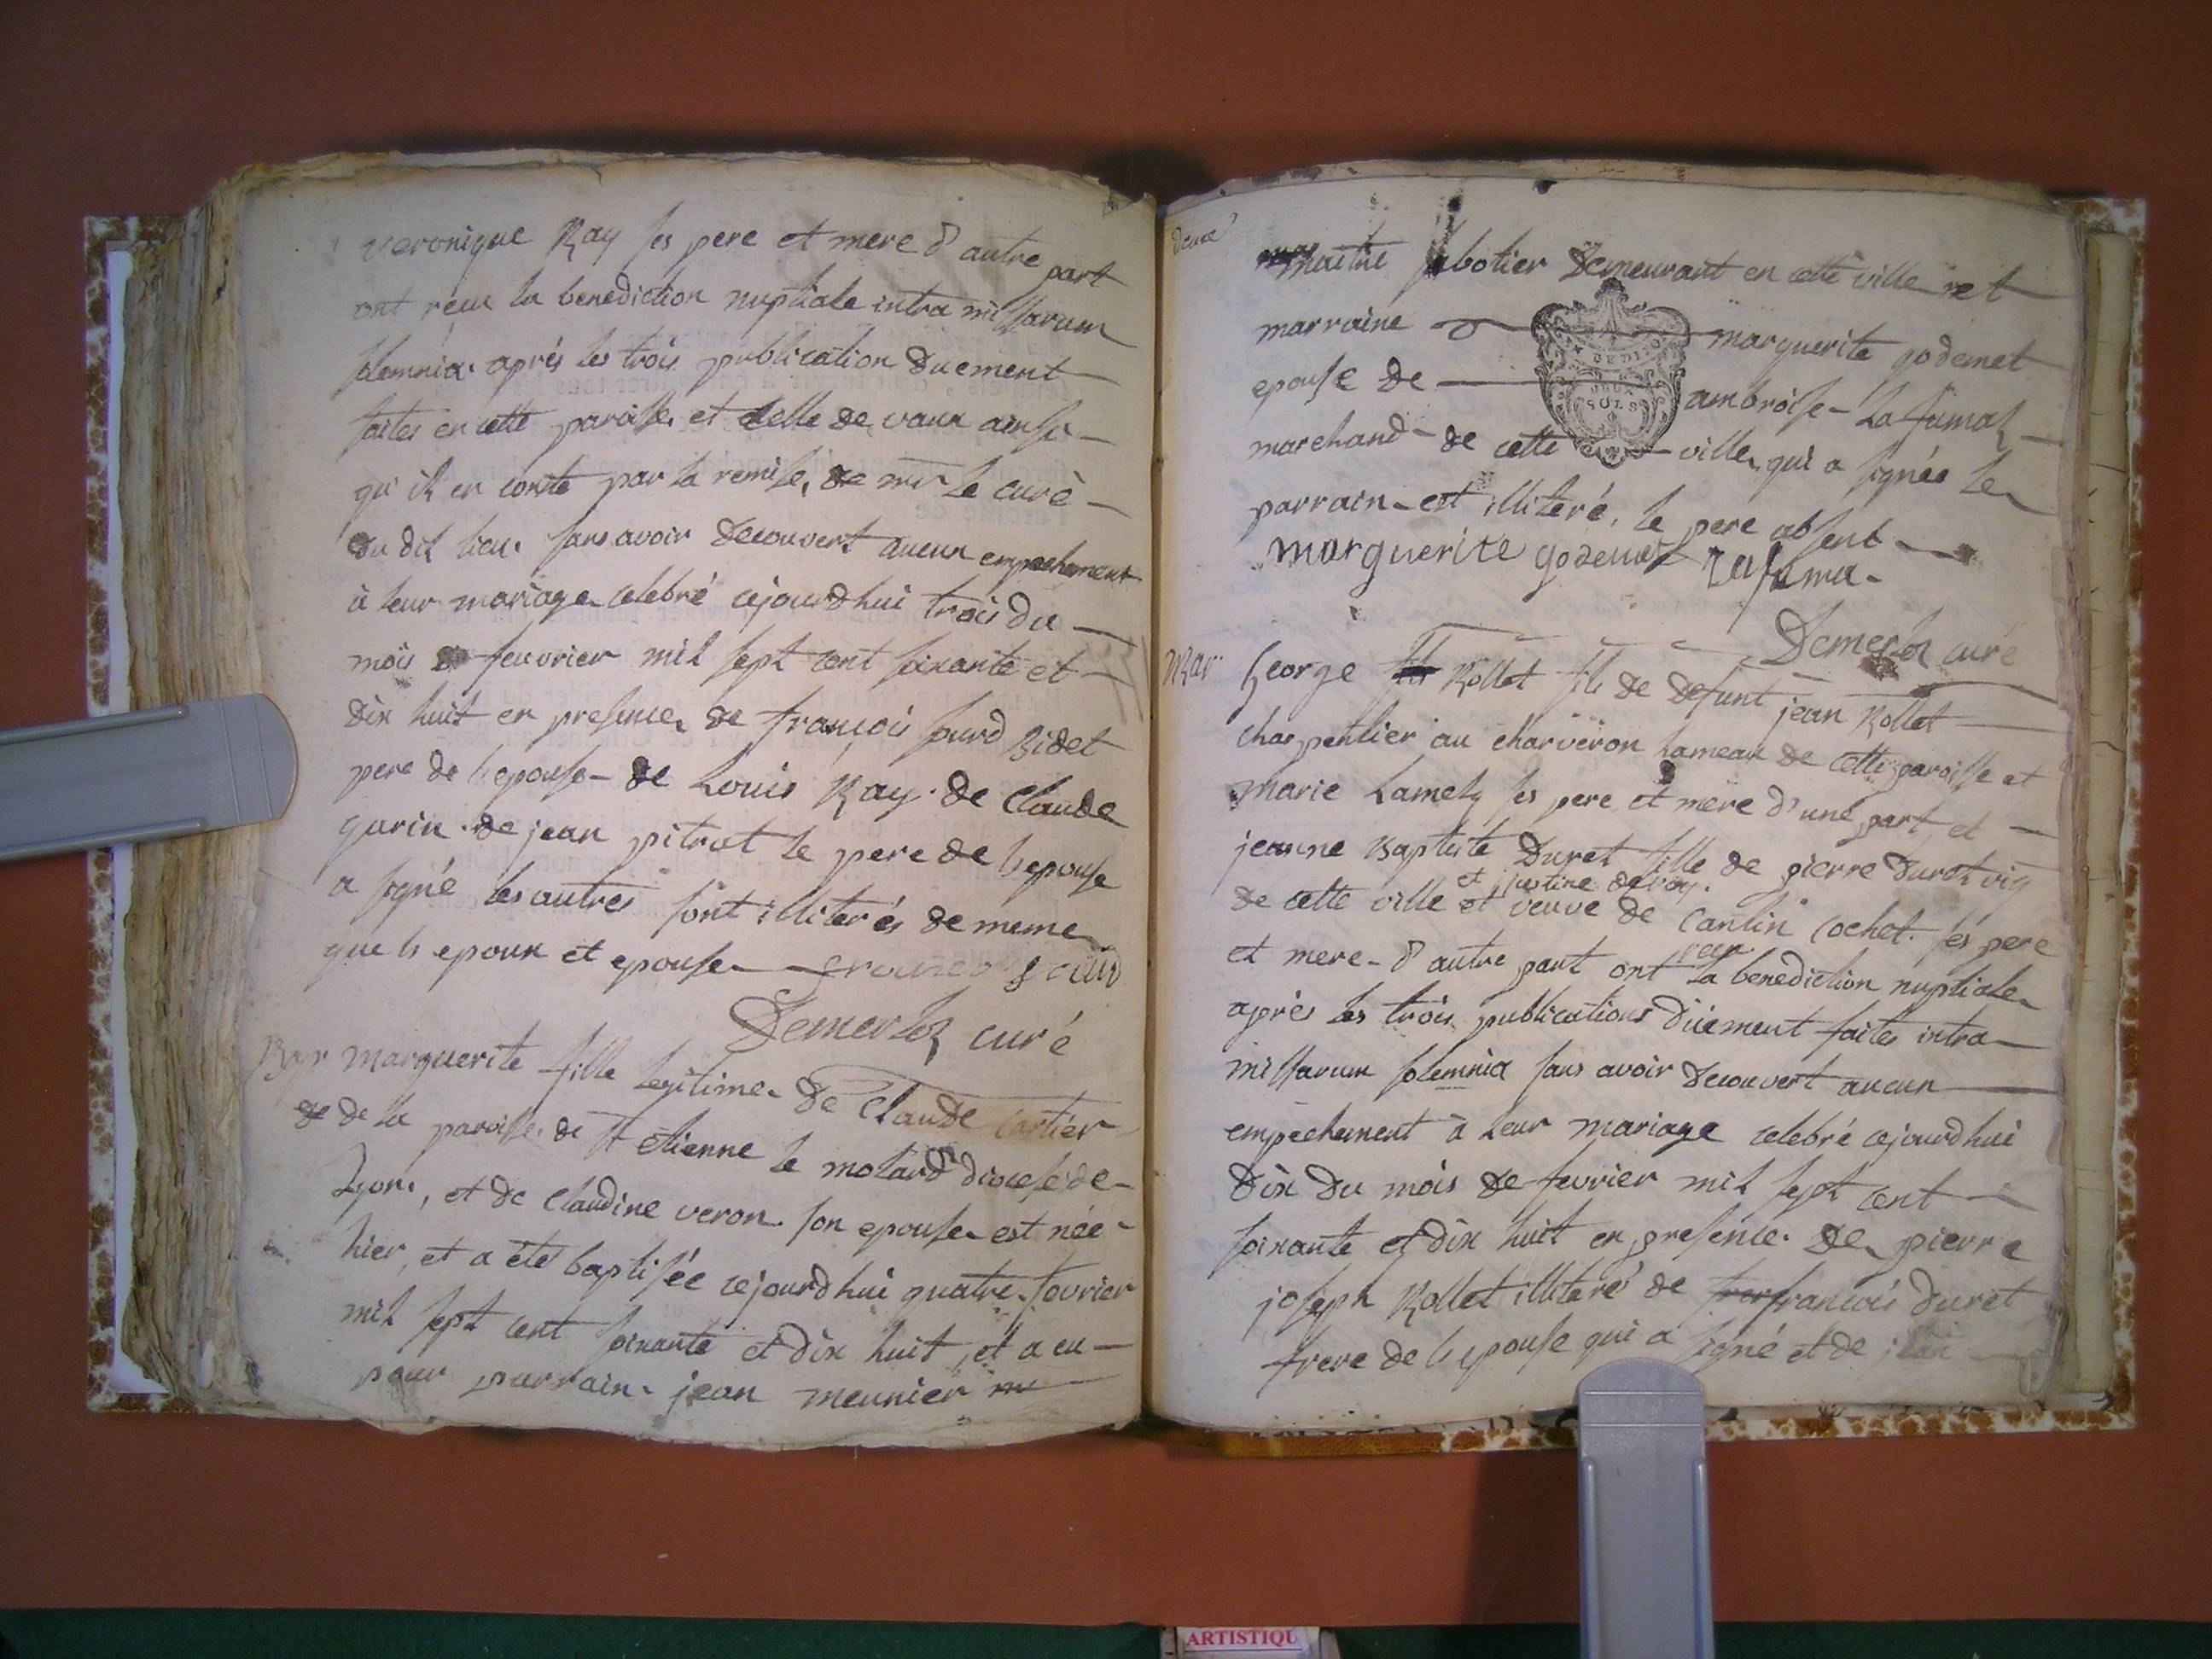 veronique Ray ses pere et mere d'autre part
ont reçu la benediction nuptiale intra missarum
solemnia après les trois publication duement
faites en cette paroisse et celle de vaux ainsi
qu'il en conste par la remise de mr le curé
du dit lieu sans avoir decouvert aucun empechement
à leur mariage celebré cejourdhui trois du
mois de feuvrier mil sept cent soixante et
dix huit en presence de françois sourd Bidet
pere de l'epouse de Louis Ray de Claude
garin de jean pitrat le pere de l'epouse
a signé les autres sont illiterés de meme
que ls epoux et epouse
Demerloz curé
Bap marguerite fille legitime de Claude Cartier
de de la paroisse de st etienne le molard diocese de
Lyon, et de Claudine veron son epouse est née
hier, et a été baptisée cejourdhui quatre fevrier
mil sept cent soixante et dix huit, et a eu
pour parrain jean meunier
deux
maitre sabotier Demeurant en cette ville et
marraine marguerite godemet
epouse de ambroise La fumaz
marchand de cette ville, qui a signée le
parrain est illiteré, le pere absent
DEUX SOLS
marguerite godemet Lafuma
Demerloz curé
Mar
George fils Rollet fils de defunt jean Rollet
charpentier au charveron hameau de cette paroisse et
Marie Lamety ses pere et mere d'une part, et
jeanne Baptiste Duret fille de pierre duret
et justine
de cette ville et veuve de Cochet ses pere
reçu
et mere d'autre part ont la benediction nuptiale
après les trois publications duement faites intra
missarum solemnia sans avoir decouvert aucun
empechement à leur mariage celebré cejourdhui
dix du mois de fevrier mil sept cent
soixante et dix huit en presence de pierre
joseph Rollet illiteré de françois duret
frere de l'epouse qui a signé et de jean
ARTISTIQU